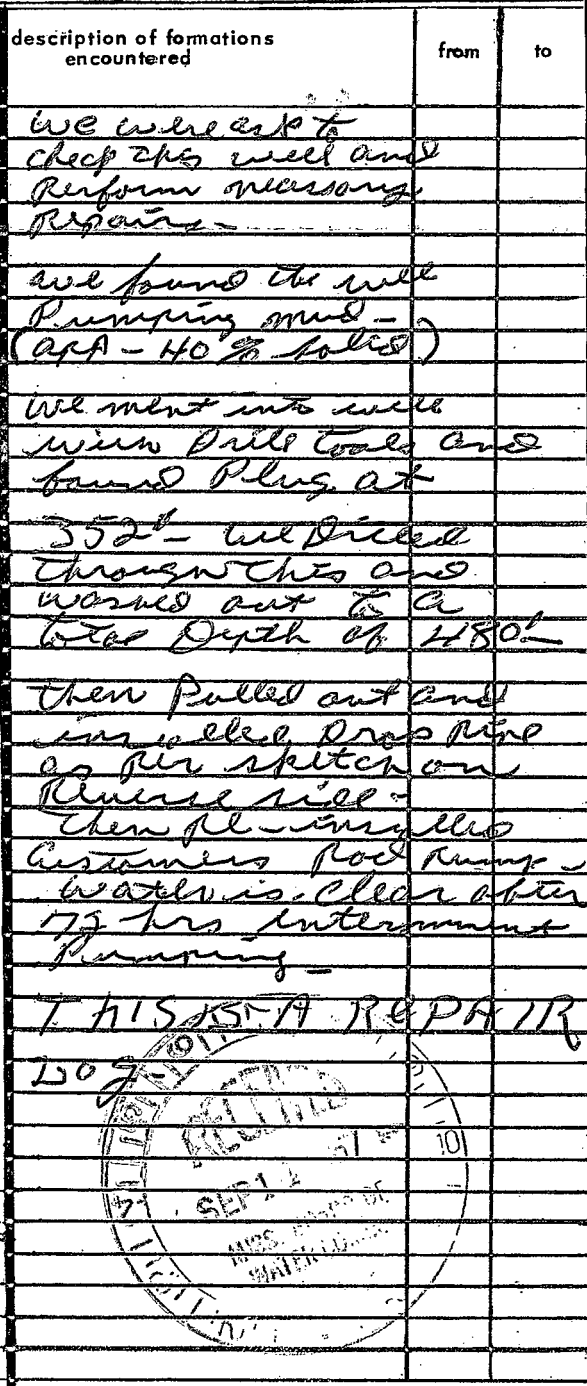 description of formations
encountered
from
to
we were ask to
check this well and
Perform neassary
Repairs -
we found the well
Pumping mud -
(apA - 40% solid)
we went into well
with Drill tools and
found Plug at
352' - we Drilled
through this and
washed out to a
total Depth of 480' -
then Pulled out and
installed Drop Pipe
as per sketch on
Reverse side -
then Re-installed
Customers Rod Pump -
water is clear after
72 hrs interminnt
Pumping -
THIS IS A REPAIR
Log -
RECEIVED
SEP 1
MISS. BOARD OF
WATER